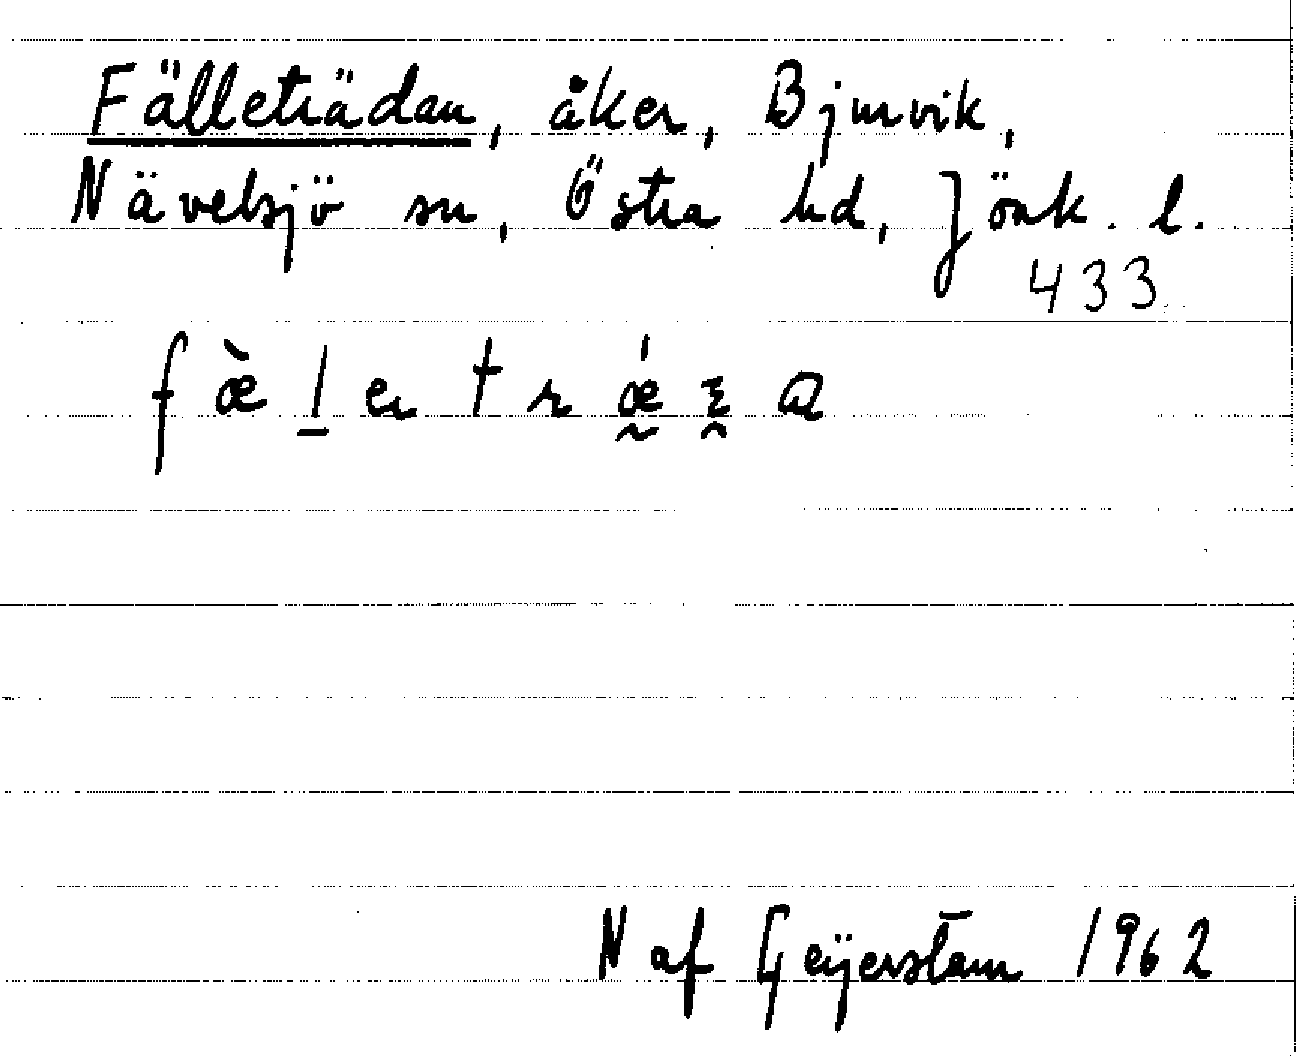 Fälleträdan, åker, Bjurvik,
Nävelsjö sn, Östra hd, Jönk. l.
433
N af Geijerstam 1962